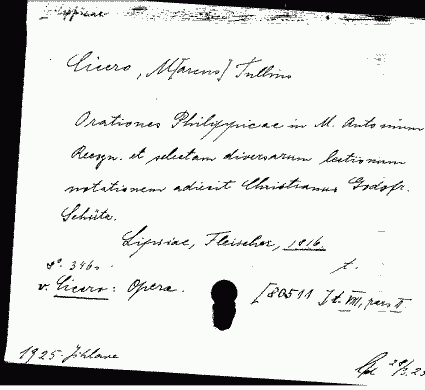 Cicero, M[arcus] Tullius
Orationes Philippicae in M. Antonium
Recogn. et selectam diversarum lectionum
notationem adiecit Christianus Godofr.
Schütz.
Lipsiae, Fleischer, 1816.
8°. 346 s. t.
v. Cicero: Opera. [80511] t. VIII, pars II
1925 Jihlava